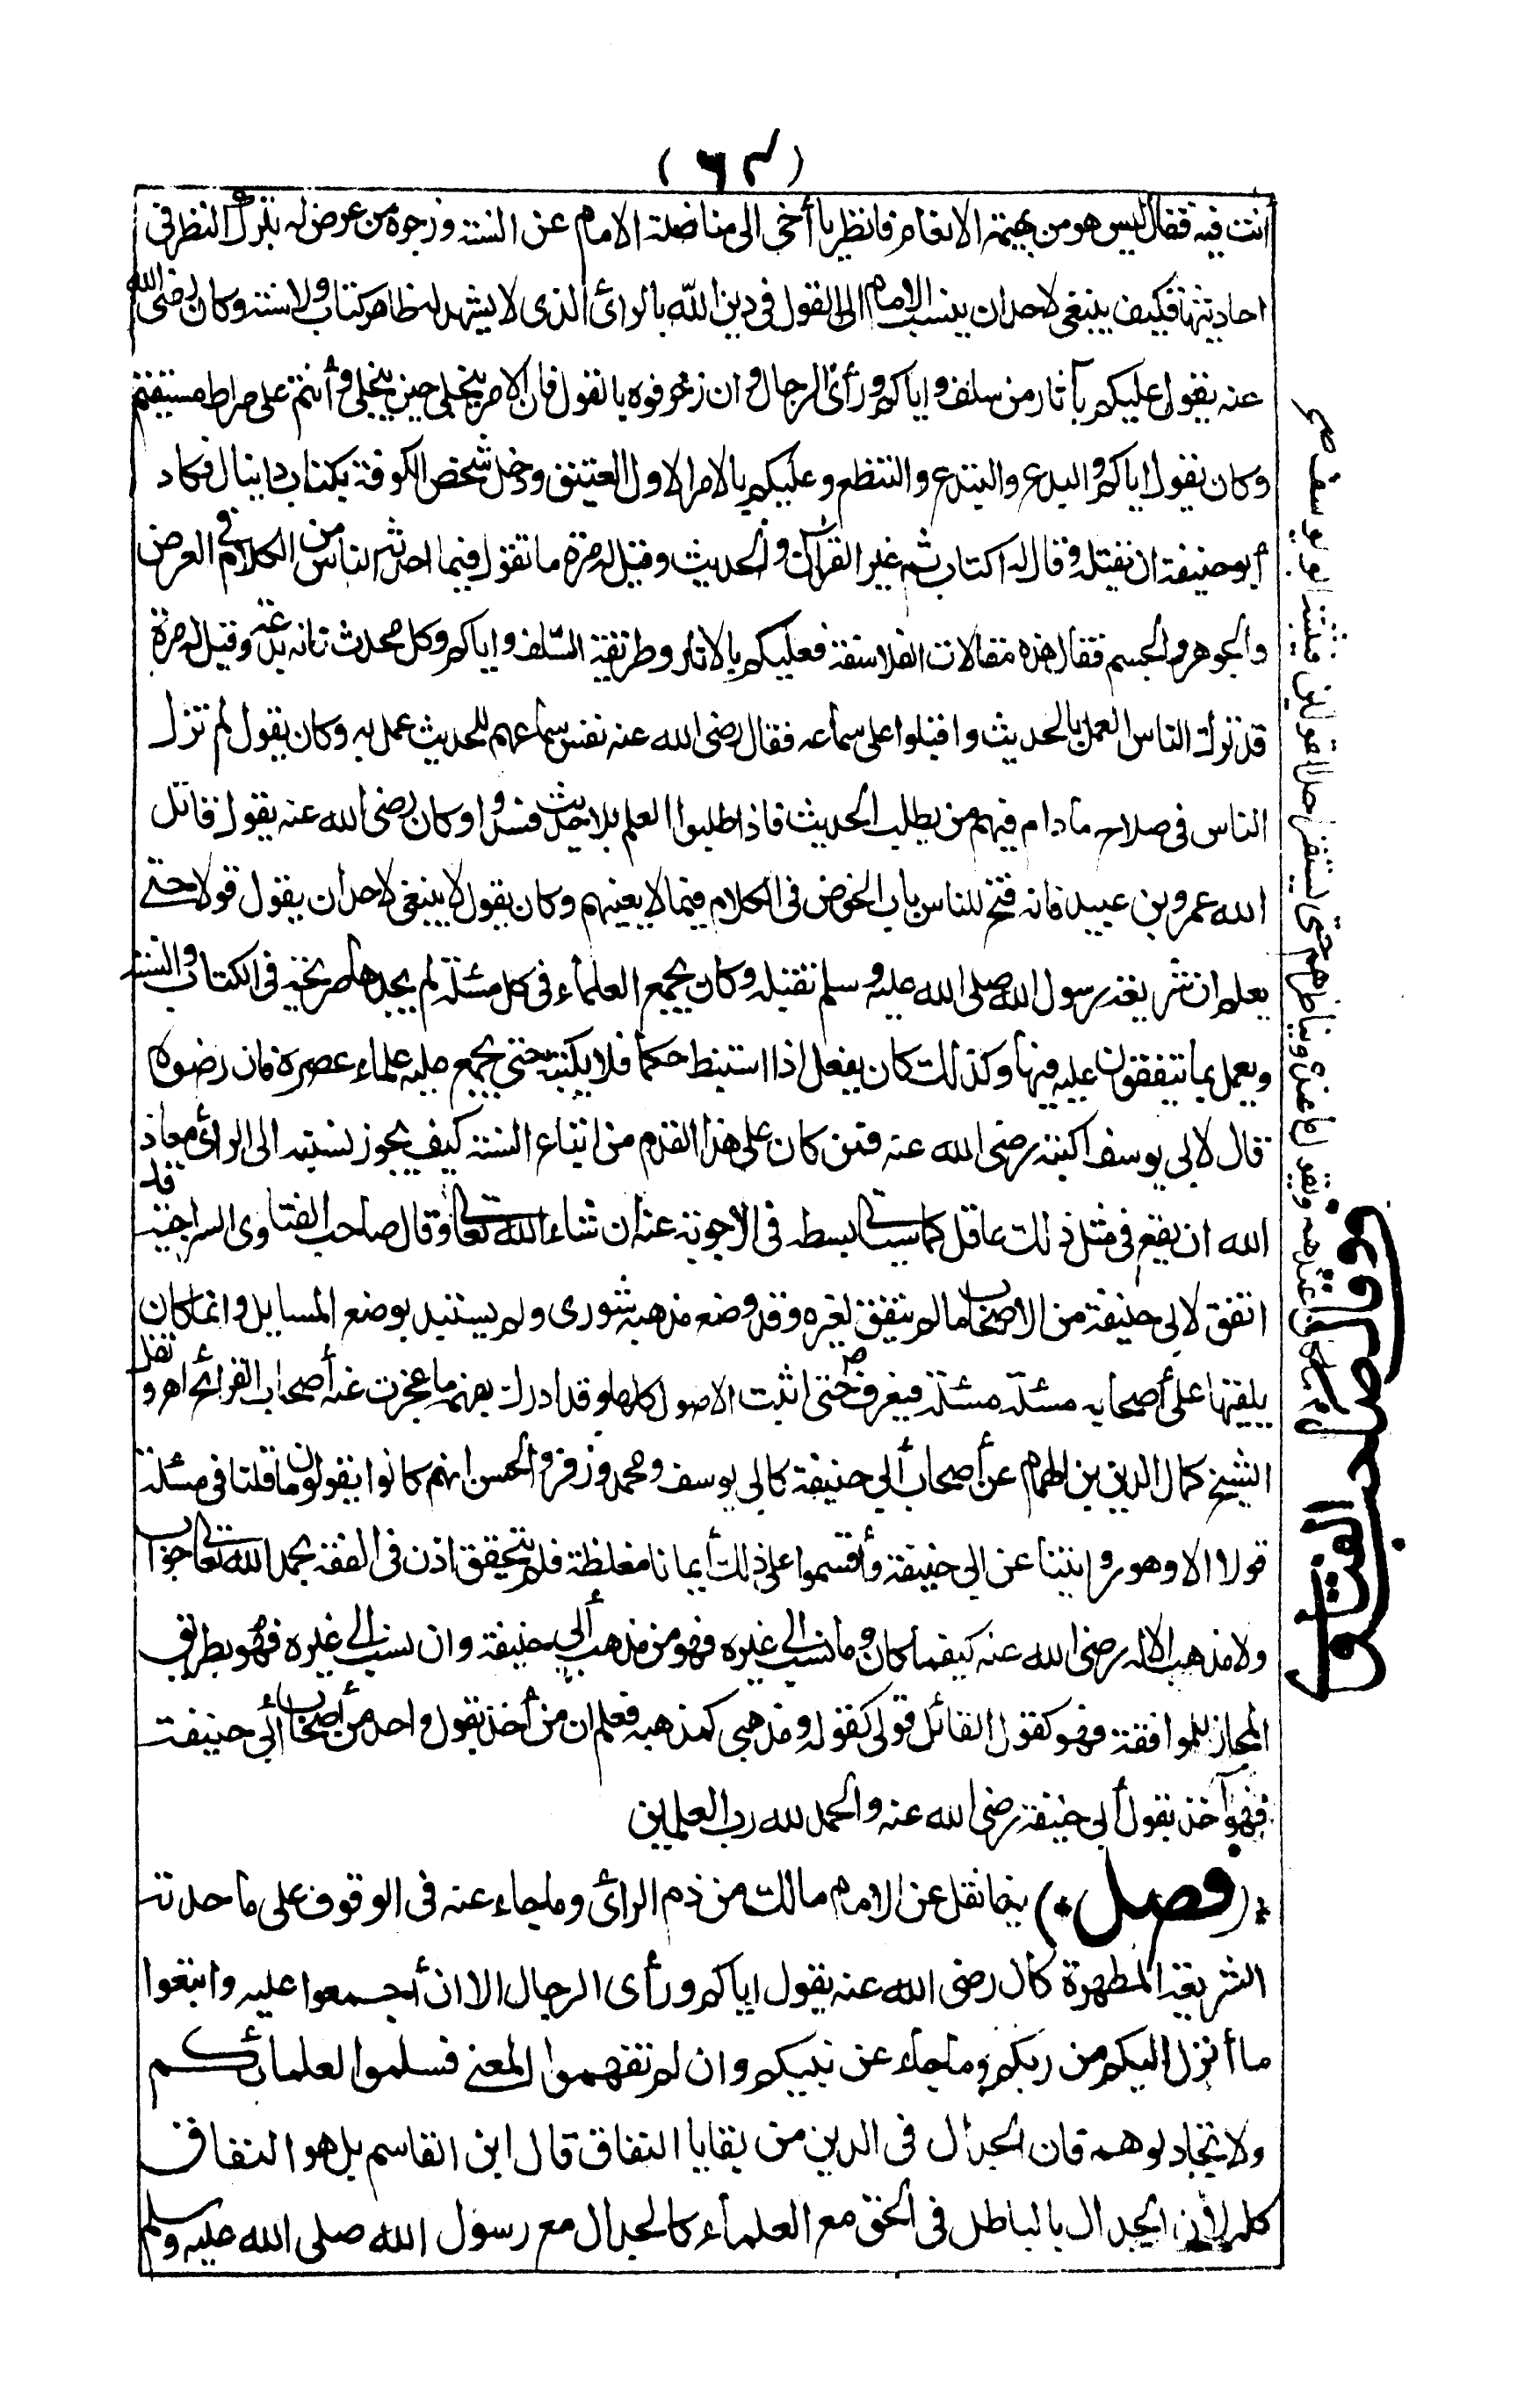 (٦٣)
أنت فيه فقال ليس هو من بهيمة الانعام فانظر يا أخى الى مناضلة الامام عن السنة وزجره من عرض له بترك النظر فى
احاديثها فكيف ينبغى لاحد ان ينسب الامام الى القول فى دين الله بالرائ الذى لا يشهد له ظاهر كتاب ولا سنة وكان رضى الله
عنه يقول عليكم بآثار من سلف واياكم ورأى الرجال وان زخرفوه بالقول فان الامر ينجلى حين ينجلى وأنتم على صراط مستقيم
وكان يقول اياكم والبدع والتبدع والتنطع وعليكم بالامر الاول العتيق ودخل شخص الكوفة بكتاب دانيال فكاد
أبو حنيفة ان يقتله وقال له اكتاب ثم غير القرآن والحديث وقيل له مرة ما تقول فيما احدثه الناس من الكلام فى العرض
والجوهر والجسم فقال هذه مقالات الفلاسفة فعليكم بالاثار وطريقة السلف واياكم وكل محدث فانه بدعة وقيل له مرة
قد ترك الناس العمل بالحديث واقبلوا على سماعه فقال رضى الله عنه نفس سماعهم للحديث عمل به وكان يقول لم تزل
الناس فى صلاح ما دام فيهم من يطلب الحديث فاذا طلبوا العلم بلا حديث فسدوا وكان رضى الله عنه يقول قاتل
الله عمرو بن عبيد فانه فتح للناس باب الخوض فى الكلام فيما لا يعنيهم وكان يقول لا ينبغى لاحد ان يقول قولا حتى
يعلم ان شريعة رسول الله صلى الله عليه وسلم تقبله وكان يجمع العلماء فى كل مسئلة لم يجدها صريحة فى الكتاب والسنة
ويعمل بما يتفقون عليه فيها وكذلك كان يفعل اذا استنبط حكما فلا يكتبه حتى يجمع عليه علماء عصره فان رضوه
قال لابى يوسف اكتبه رضى الله عنه فمن كان على هذا القدم من اتباع السنة كيف يجوز نسبته الى الرائ معاذ
الله ان يقع فى مثل ذلك عاقل كما سيأتى بسطه فى الاجوبة عنه ان شاء الله تعالى وقال صاحب الفتاوى السراجية قد
اتفق لابى حنيفة من الاصحاب ما لم يتفق لغيره وقد وضع مذهبه شورى ولم يستبد بوضع المسايل وانما كان
يلقيها على أصحابه مسئلة مسئلة فيعرف حتى اثبت الاصول كلها وقد ادرك بفهمه ما عجزت عنه أصحاب القرائح اهـ ونقل
الشيخ كمال الدين بن الهمام عن أصحاب أبى حنيفة كابى يوسف ومحمد وزفر والحسن انهم كانوا يقولون ما قلنا فى مسئلة
قولا الا وهو روايتنا عن ابى حنيفة وأقسموا على ذلك أيمانا مغلظة فلم يتحقق اذن فى الفقه بحمد الله تعالى جواب
ولا مذهب الا له رضى الله عنه كيفما كان وما نسب الى غيره فهو من مذهب أبى حنيفة وان نسب الى غيره فهو بطريق
المجاز للموافقة فهو كقول القائل قولى كقوله ومذهبى كمذهبه فعلم ان من أخذ بقول واحد من أصحاب أبى حنيفة
فهو آخذ بقول أبى حنيفة رضى الله عنه والحمد لله رب العلمين
*(فصل*) فيما نقل عن الامام مالك من ذم الرائ وما جاء عنه فى الوقوف على ما حدته
الشريعة المطهرة كان رضى الله عنه يقول اياكم ورأى الرجال الا ان أجمعوا عليه واتبعوا
ما أنزل اليكم من ربكم وما جاء عن نبيكم وان لم تفهموا المعنى فسلموا لعلمائكم
ولا تجادلوهم فان الجدال فى الدين من بقايا النفاق قال ابن القاسم بل هو النفاق
كله لان الجدال بالباطل فى الحق مع العلماء كالجدال مع رسول الله صلى الله عليه وسلم
وقال صاحب الفتاوى
ويناظرهم حتى يستقر احد القولين فيثبته ابو يوسف صح